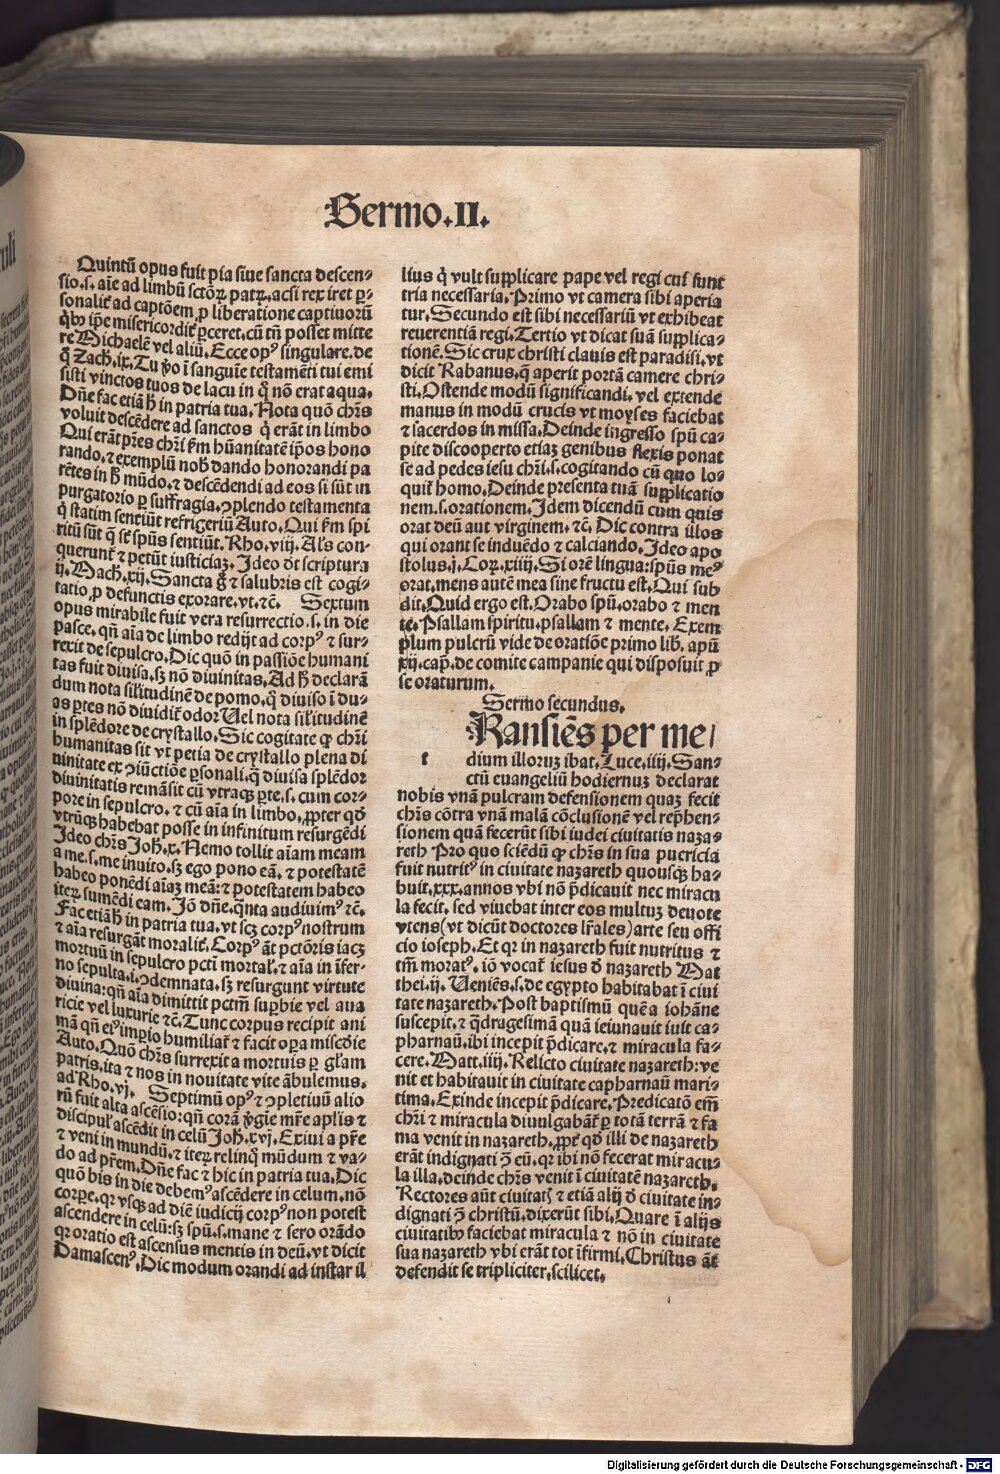 Sermo.II.
Quintū opus fuit pia siue sancta descen⸗
sio.s. aīe ad limbū sctōꝝ patꝝ. acsi rex iret ꝑ⸗
sonalit̄ ad captōem ꝓ liberatione captiuorū
q̇bꝰ ip̄e misericordit̄ ꝑceret. cū tn̄ posset mitte
re Michaelē vel aliū. Ecce opꝰ singulare. de
q̊ Zach. ix. Tu v̊o ī sanguīe testamēti tui emi
sisti vinctos tuos de lacu in q̊ nō erat aqua.
Dn̄e fac etiā h̄ in patria tua. Nota quō chr̄s
voluit descēdere ad sanctos q̇ erāt in limbo
Qui erāt pr̄es chr̄i ẜm hūanitatē ip̄os hono
rando. ⁊ exemplū nob̄ dando honorandi pa
rētes in h̄ mūdo. ⁊ descēdendi ad eos si sūt in
purgatorio ꝑ suffragia. ꝯplendo testamenta
q̇ statim sentiūt refrigeriū Auto. Qui ẜm spi
ritū sūt q̄ st̄ spūs sentiūt. Rho. viij. Al's con⸗
querunt̄ ⁊ petūt iusticiaꝫ. Ideo dt̄ scriptura
ij. Mach. xij. Sancta g̊ ⁊ salubris est cogi⸗
tatio ꝓ defunctis exorare. vt. ⁊č. Sextum
opus mirabile fuit vera resurrectio. s. in die
pasce. qn̄ aīa de limbo redijt ad corpꝰ ⁊ sur⸗
rexit de sepulcro. Dic quō in passiōe humani
tas fuit diuisa. sꝫ nō diuinitas. Ad h̄ declarā
dum nota sil'itudinē de pomo. q̊ diuiso ī du⸗
as ꝑtes nō diuidit̄ odor Uel nota sil'itudinē
in splēdore de crystallo. Sic cogitate ꝙ chr̄i
humanitas sit vt petia de crystallo plena di
uinitate ex ꝯiūctiōe ꝑsonali. q̄ diuisa splēdor
diuinitatis remāsit cū vtraqꝫ ꝑte. s. cum cor⸗
pore in sepulcro. ⁊ cū aīa in limbo. ꝓpter qd̄
vtrūqꝫ habebat posse in infinitum resurgēdi
Ideo chr̄s Joh. x. Nemo tollit aīam meam
a me. s. me inuito. sꝫ ego pono eā. ⁊ potestatē
habeo ponēdi aīaꝫ meā: ⁊ potestatem habeo
iteꝝ sumēdi eam. Iō dn̄e. q̇nta audiuimꝰ ⁊č.
Fac etiā h̄ in patria tua. vt scꝫ corpꝰ nostrum
⁊ aīa resurgāt moralit̄. Corpꝰ āt pctōris iacꝫ
mortuū in sepulcro pcti mortal'. ⁊ aīa in īfer⸗
no sepulta. i. ꝯdemnata. sꝫ resurgunt virtute
diuina: qn̄ aīa dimittit pctm̄ supbie vel aua
ricie vel luxurie ⁊č. Tunc corpus recipit ani
mā qn̄ eiꝰ imꝑio humiliat̄ ⁊ facit oꝑa misc̄die
Auto. Quō chr̄s surrexit a mortuis ꝑ gl'am
patris. ita ⁊ nos in nouitate vite ābulemus.
ad Rho. vj. Septimū opꝰ ⁊ ꝯpletiuū alio
rū fuit alta ascēsio: qn̄ corā v̊gīe mr̄e apl'is ⁊
discipul' ascēdit in celū Joh. xvj. Exiui a pr̄e
⁊ veni in mundū. ⁊ iteꝝ relinq̊ mūdum ⁊ va⸗
do ad pr̄em. Dn̄e fac ⁊ hic in patria tua. Dic
quō bis in die debemꝰ ascēdere in celum. nō
corpe. qꝛ vsqꝫ ad diē iudicij corpꝰ non potest
ascendere in celū: sꝫ spū. s. mane ⁊ sero orādo
qꝛ oratio est ascensus mentis in deū. vt dicit
Damascenꝰ. Dic modum orandi ad instar il
lius q̇ vult supplicare pape vel regi cui sunt
tria necessaria. Primo vt camera sibi aperia
tur. Secundo est sibi necessariū vt exhibeat
reuerentiā regi. Tertio vt dicat suā supplica⸗
tionē. Sic crux christi clauis est paradisi. vt
dicit Rabanus. q̄ aperit portā camere chri⸗
sti. Ostende modū significandi. vel extende
manus in modū crucis vt moyses faciebat
⁊ sacerdos in missa. Deinde ingresso spū ca⸗
pite discooperto etiaꝫ genibus flexis ponat
se ad pedes iesu chr̄i. s. cogitando cū quo lo⸗
quit̄ homo. Deinde presenta tuā supplicatio
nem. s. orationem. Idem dicendū cum quis
orat deū aut virginem. ⁊č. Dic contra illos
qui orant se induēdo ⁊ calciando. Ideo apo
stolus. j. Coꝝ. xiiij. Si orē lingua: spūs meꝰ
orat. mens autē mea sine fructu est. Qui sub
dit. Quid ergo est. Orabo spū. orabo ⁊ men
te. Psallam spiritu. psallam ⁊ mente. Exem
plum pulcrū vide de oratiōe primo lib. apū
xij. cap. de comite campanie qui disposuit ꝓ
se oraturum.
Sermo secundus.
t Ransiēs per me
dium illoruꝫ ibat. Luce. iiij. San⸗
ctū euangeliū hodiernuꝫ declarat
nobis vnā pulcram defensionem quaꝫ fecit
chr̄s cōtra vnā malā cōclusionē vel reprehen⸗
sionem quā fecerūt sibi iudei ciuitatis naza⸗
reth Pro quo sciēdū ꝙ chr̄s in sua puericia
fuit nutritꝰ in ciuitate nazareth quousqꝫ ha⸗
buit. xxx. annos vbi nō p̄dicauit nec miracu
la fecit. sed viuebat inter eos multuꝫ deuote
vtens (vt dicūt doctores lr̄ales) arte seu offi
cio ioseph. Et qꝛ in nazareth fuit nutritus ⁊
tm̄ moratꝰ. iō vocat̄ iesus d̄ nazareth Mat
thei. ij. Ueniēs. s. de egypto habitabat ī ciui
tate nazareth. Post baptismū quē a iohāne
suscepit. ⁊ q̇dragesimā quā ieiunauit iuit ca⸗
pharnaū. ibi incepit p̄dicare. ⁊ miracula fa⸗
cere. Matt. iiij. Relicto ciuitate nazareth: ve
nit et habitauit in ciuitate capharnaū mari⸗
tima. Exinde incepit p̄dicare. Predicatō em̄
chr̄i ⁊ miracula diuulgabāt̄ ꝑ totā terrā ⁊ fa
ma venit in nazareth. ꝓpt̄ qd̄ illi de nazareth
erāt indignati ꝯ̄ eū. qꝛ ibi nō fecerat miracu⸗
la illa. deinde chr̄s venit ī ciuitatē nazareth.
Rectores aūt ciuitatꝭ ⁊ etiā alij d̄ ciuitate in⸗
dignati ꝯ̄ christū. dixerūt sibi. Quare ī alijs
ciuitatibꝰ faciebat miracula ⁊ nō in ciuitate
sua nazareth vbi erāt tot īfirmi. Christus āt
defendit se tripliciter. scilicet.
Digitalisierung gefördert durch die Deutsche Forschungsgemeinschaft - DFG